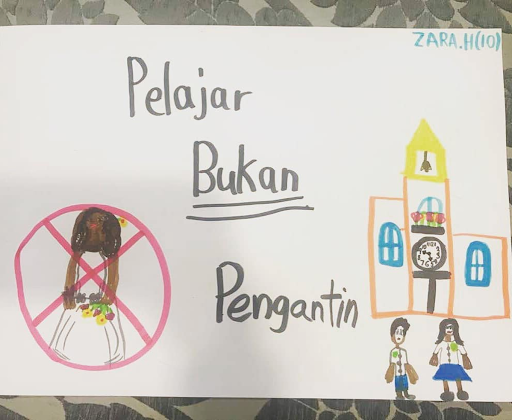 ZARA.H(10)
Pelajar
Bukan
Pengantin